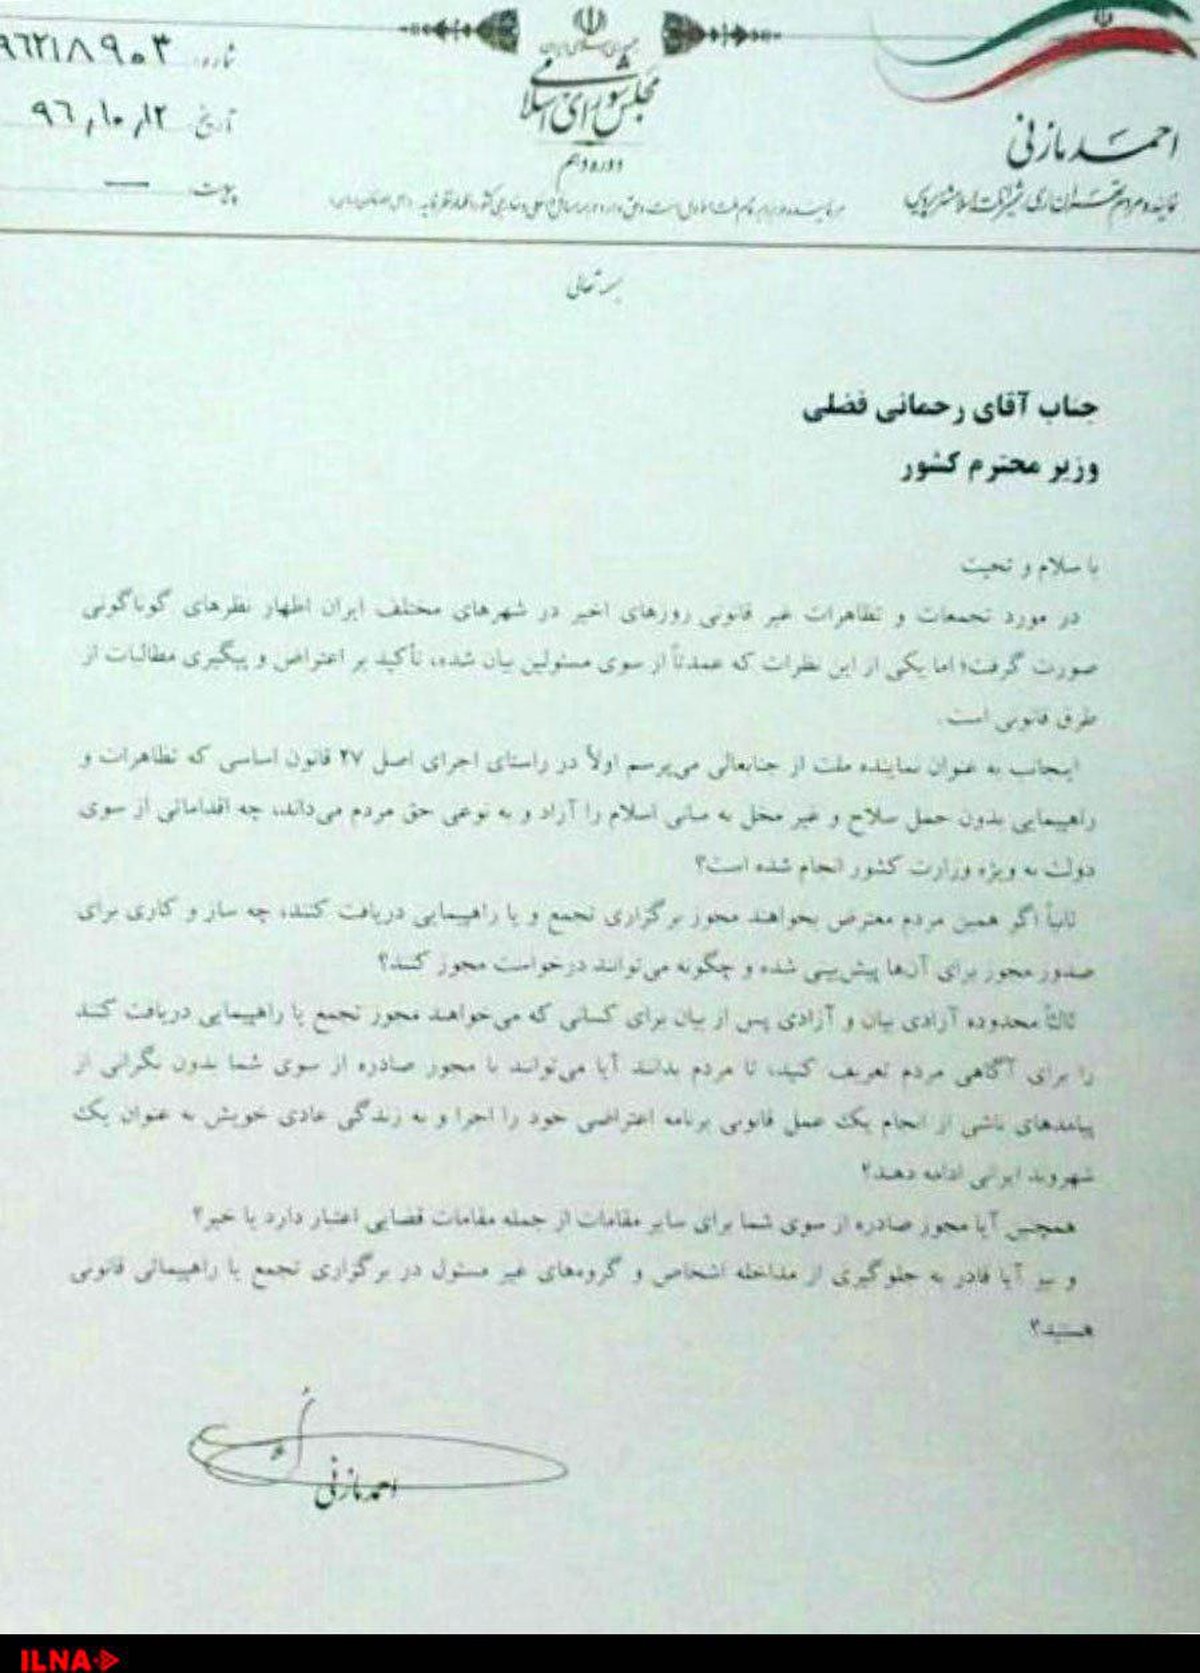 احمد مازنی
نماینده مردم تهران، ری، شمیرانات، اسلامشهر و پردیس
جمهوری اسلامی ایران
مجلس شورای اسلامی
دوره دهم
شماره: ۹۶۲۱۸۹۰۳
تاریخ: ۹۶,۱۰,۱۲
پیوست: —
بسمه تعالی
جناب آقای رحمانی فضلی
وزیر محترم کشور
با سلام و تحیت
در مورد تجمعات و تظاهرات غیر قانونی روزهای اخیر در شهرهای مختلف ایران اظهار نظرهای گوناگونی
صورت گرفت؛ اما یکی از این نظرات که عمدتاً از سوی مسئولین بیان شده، تأکید بر اعتراض و پیگیری مطالبات از
طرق قانونی است.
اینجانب به عنوان نماینده ملت از جنابعالی می‌پرسم اولاً در راستای اجرای اصل ۲۷ قانون اساسی که تظاهرات و
راهپیمایی بدون حمل سلاح و غیر مخل به مبانی اسلام را آزاد و به نوعی حق مردم می‌داند، چه اقداماتی از سوی
دولت به ویژه وزارت کشور انجام شده است؟
ثانیاً اگر همین مردم معترض بخواهند مجوز برگزاری تجمع و یا راهپیمایی دریافت کنند، چه ساز و کاری برای
صدور مجوز برای آن‌ها پیش‌بینی شده و چگونه می‌توانند درخواست مجوز کنند؟
ثالثاً محدوده آزادی بیان و آزادی پس از بیان برای کسانی که می‌خواهند مجوز تجمع یا راهپیمایی دریافت کنند
را برای آگاهی مردم تعریف کنید، تا مردم بدانند آیا می‌توانند با مجوز صادره از سوی شما بدون نگرانی از
پیامدهای ناشی از انجام یک عمل قانونی برنامه اعتراضی خود را اجرا و به زندگی عادی خویش به عنوان یک
شهروند ایرانی ادامه دهند؟
همچنین آیا مجوز صادره از سوی شما برای سایر مقامات از جمله مقامات قضایی اعتبار دارد یا خیر؟
و نیز آیا قادر به جلوگیری از مداخله اشخاص و گروه‌های غیر مسئول در برگزاری تجمع یا راهپیمائی قانونی
هستید؟
احمد مازنی
ILNA